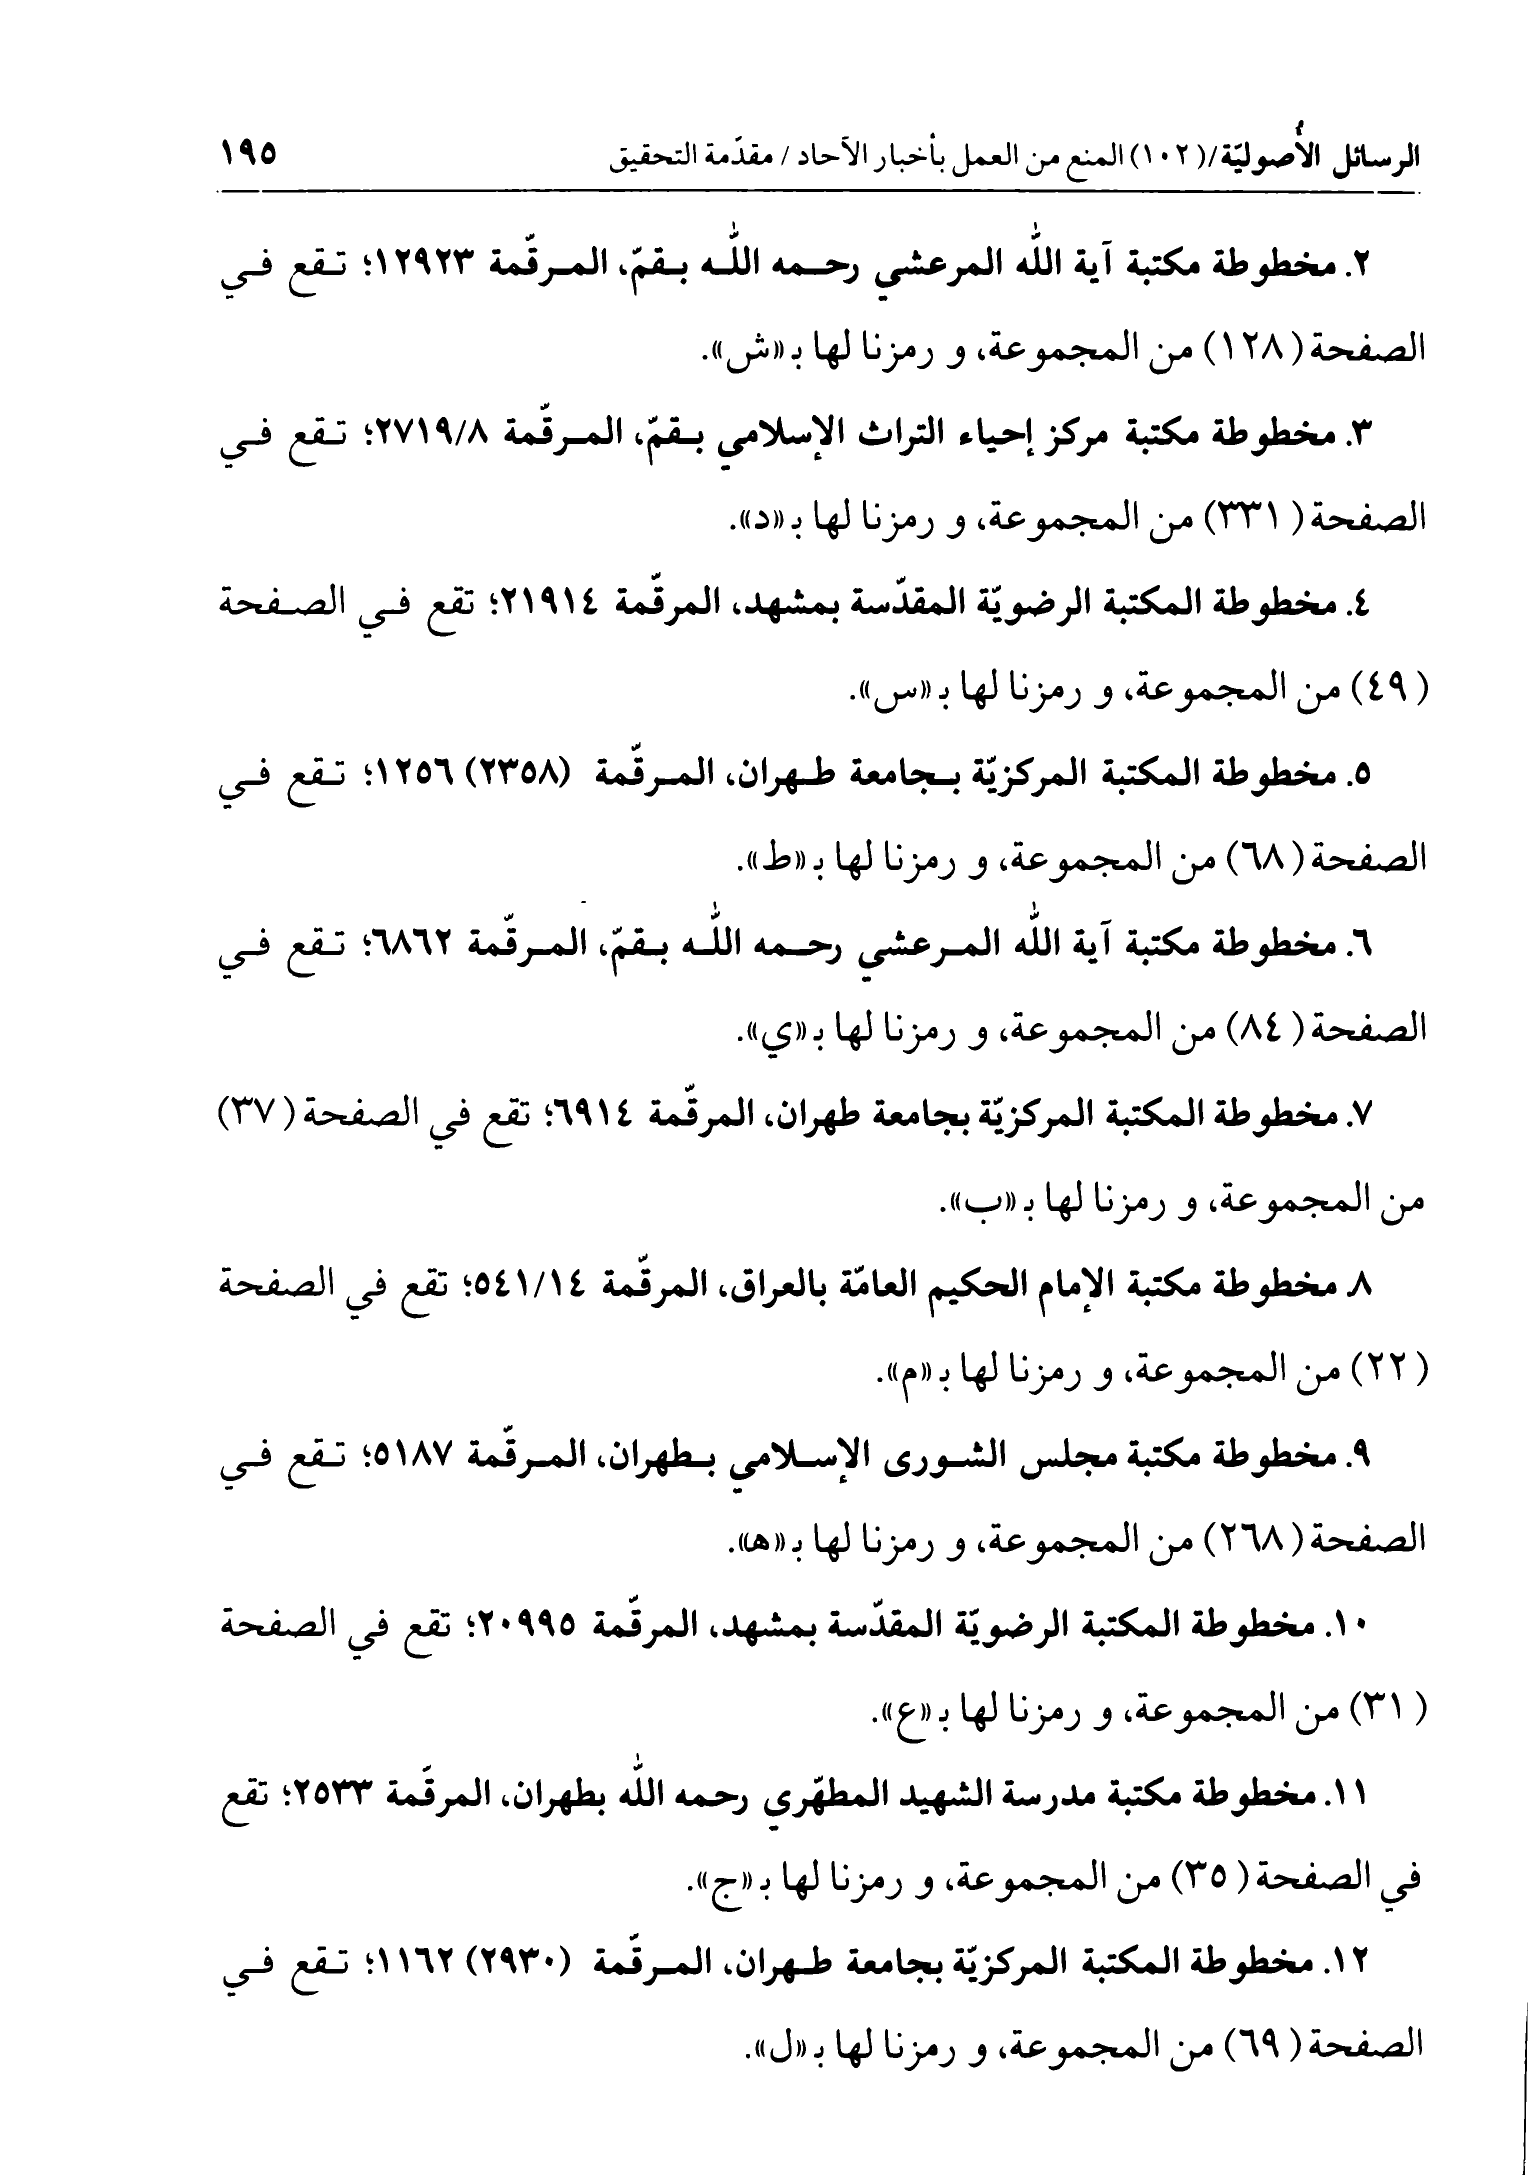 الرسائل الأُصوليّة/(١٠٢) المنع من العمل بأخبار الآحاد / مقدّمة التحقيق ١٩٥
٢. مخطوطة مكتبة آية اللّٰه المرعشي رحمه اللّٰه بقمّ، المرقّمة ١٢٩٢٣؛ تقع في
الصفحة (١٢٨) من المجموعة، و رمزنا لها بـ«ش».
٣. مخطوطة مكتبة مركز إحياء التراث الإسلامي بقمّ، المرقّمة ٢٧١٩/٨؛ تقع في
الصفحة (٣٣١) من المجموعة، و رمزنا لها بـ«د».
٤. مخطوطة المكتبة الرضويّة المقدّسة بمشهد، المرقّمة ٢١٩١٤؛ تقع في الصفحة
(٤٩) من المجموعة، و رمزنا لها بـ«س».
٥. مخطوطة المكتبة المركزيّة بجامعة طهران، المرقّمة (٢٣٥٨) ١٢٥٦؛ تقع في
الصفحة (٦٨) من المجموعة، و رمزنا لها بـ«ط».
٦. مخطوطة مكتبة آية اللّٰه المرعشي رحمه اللّٰه بقمّ، المرقّمة ٦٨٦٢؛ تقع في
الصفحة (٨٤) من المجموعة، و رمزنا لها بـ«ي».
٧. مخطوطة المكتبة المركزيّة بجامعة طهران، المرقّمة ٦٩١٤؛ تقع في الصفحة (٣٧)
من المجموعة، و رمزنا لها بـ«ب».
٨. مخطوطة مكتبة الإمام الحكيم العامّة بالعراق، المرقّمة ٥٤١/١٤؛ تقع في الصفحة
(٢٢) من المجموعة، و رمزنا لها بـ«م».
٩. مخطوطة مكتبة مجلس الشورى الإسلامي بطهران، المرقّمة ٥١٨٧؛ تقع في
الصفحة (٢٦٨) من المجموعة، و رمزنا لها بـ«ه».
١٠. مخطوطة المكتبة الرضويّة المقدّسة بمشهد، المرقّمة ٢٠٩٩٥؛ تقع في الصفحة
(٣١) من المجموعة، و رمزنا لها بـ«ع».
١١. مخطوطة مكتبة مدرسة الشهيد المطهّري رحمه اللّٰه بطهران، المرقّمة ٢٥٣٣؛ تقع
في الصفحة (٣٥) من المجموعة، و رمزنا لها بـ«ج».
١٢. مخطوطة المكتبة المركزيّة بجامعة طهران، المرقّمة (٢٩٣٠) ١١٦٢؛ تقع في
الصفحة (٦٩) من المجموعة، و رمزنا لها بـ«ل».